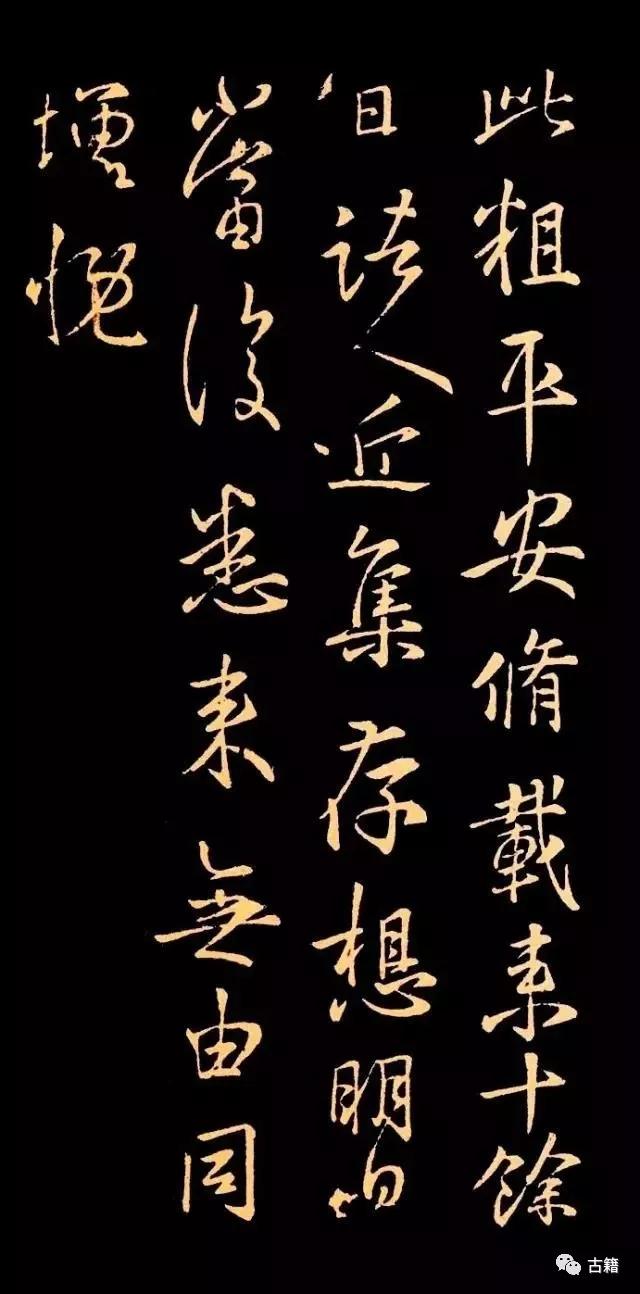 此粗平安脩載来十餘
日諸人近集存想明日
當復悉来無由同
增慨
古籍